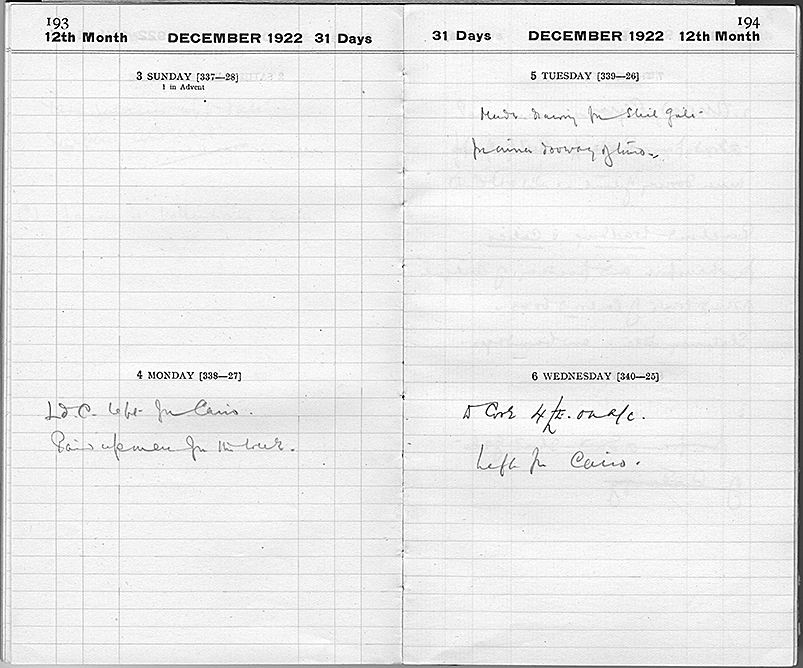 193
12th Month DECEMBER 1922 31 Days
3 SUNDAY [337—28]
1 in Advent
4 MONDAY [338—27]
Ld. C. left for Cairo.
Paid up men for the week.
194
31 Days DECEMBER 1922 12th Month
5 TUESDAY [339—26]
Made drawing for Steel Gate
for inner doorway of tomb.
6 WEDNESDAY [340—25]
Cook 4 on a/c.
Left for Cairo.